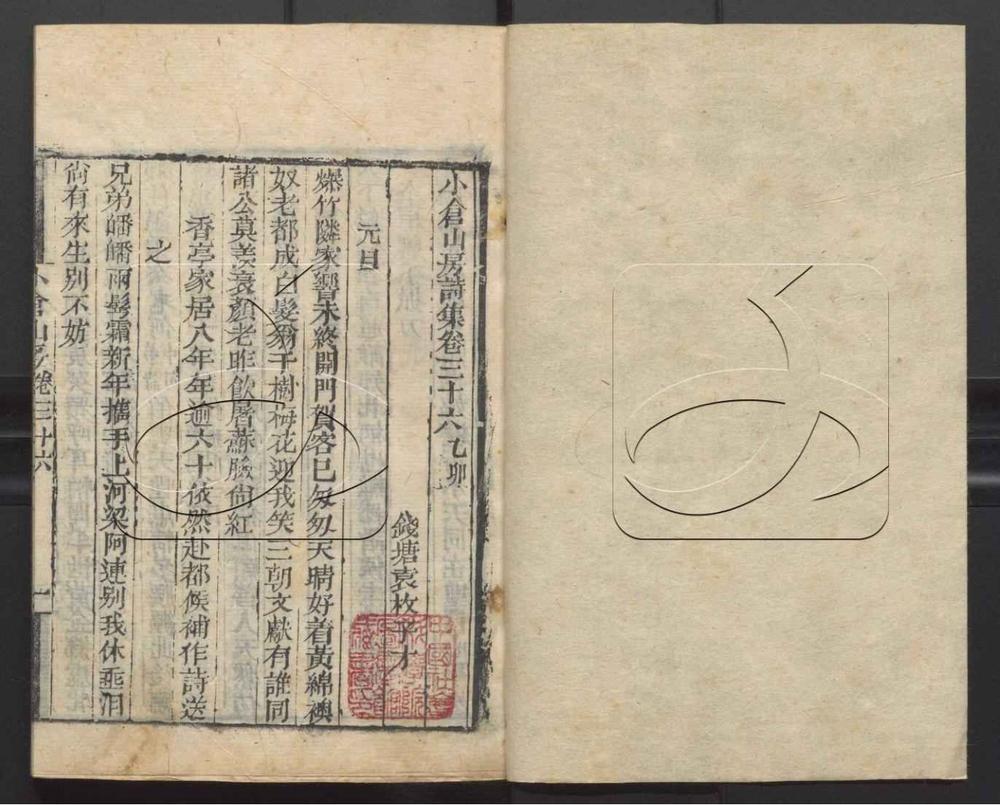 小倉山房詩集卷三十六 乙卯
錢塘袁枚子才
元日
爆竹隣家響未終開門賀客已匆匆天晴好着黃綿襖
奴老都成白髮翁千樹梅花迎我笑三朝文獻有誰同
諸公莫羨衰顏老昨飲屠蘇臉尚紅
香亭家居八年年逾六十依然赴都候補作詩送
之
兄弟皤皤兩鬢霜新年攜手上河梁阿連别我休垂泪
尚有來生别不妨
小倉山房卷三十六
一